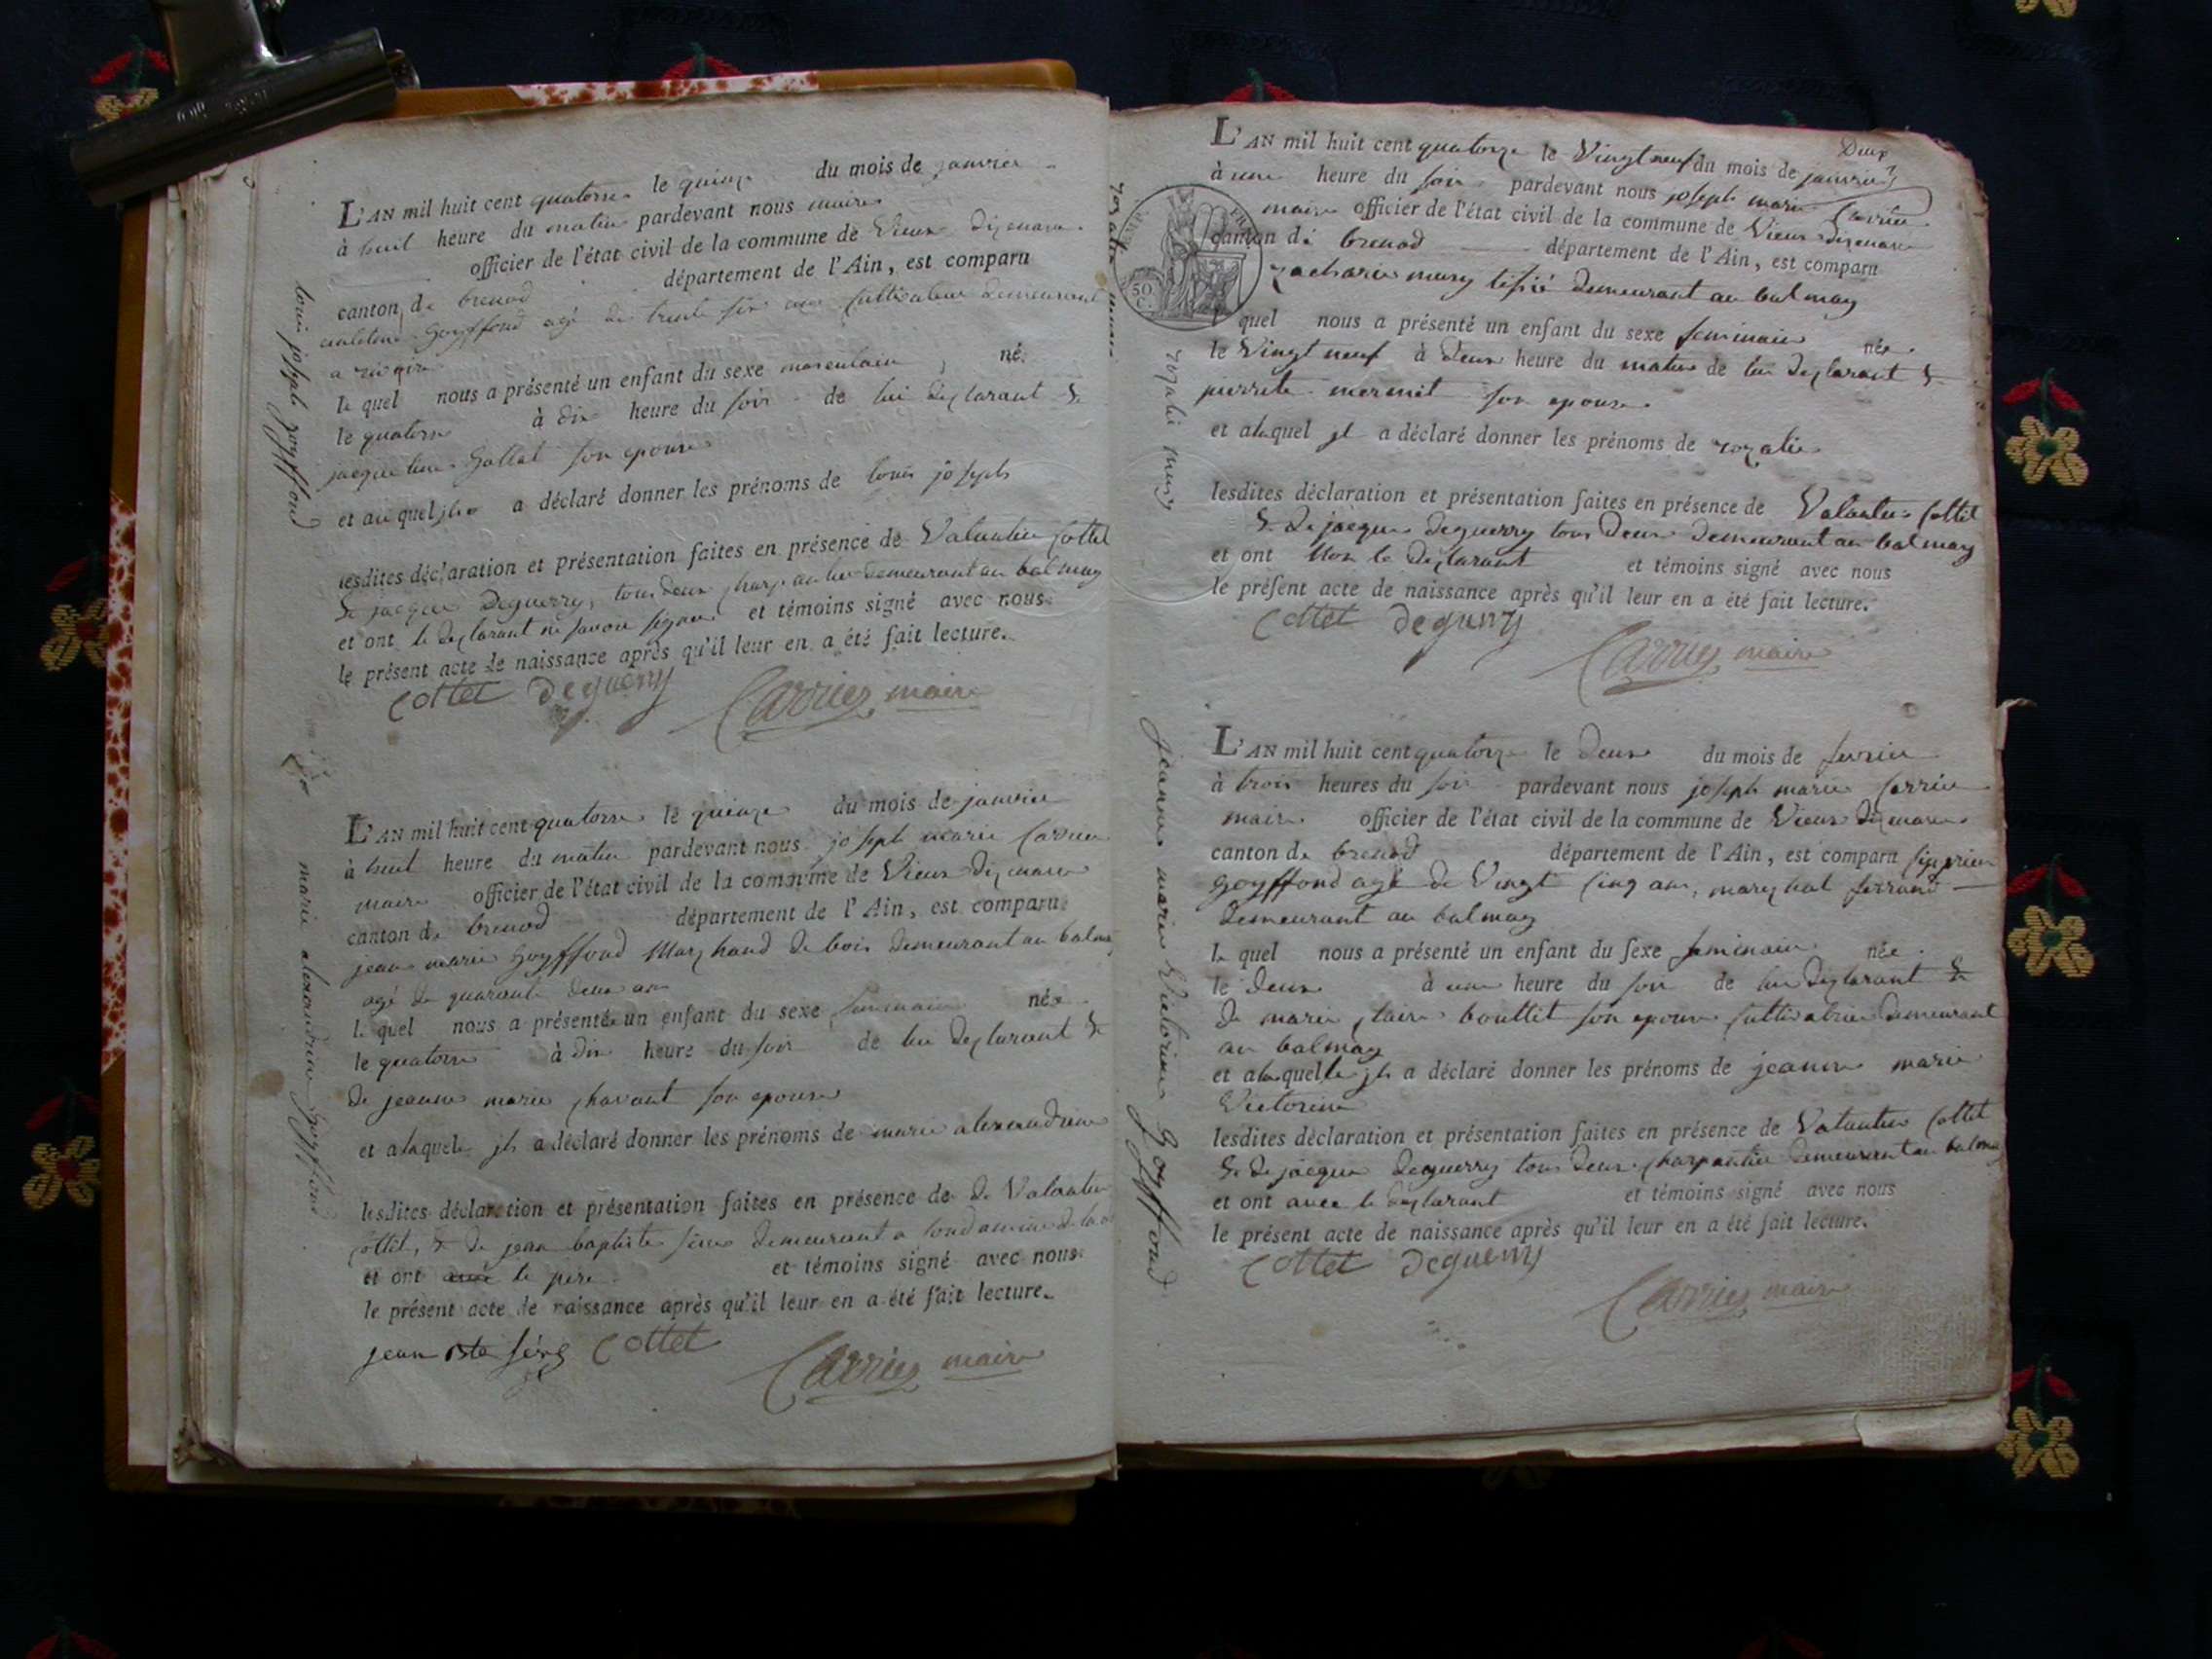 L'AN mil huit cent quatorze le quinze du mois de janvier
à huit heure du matin pardevant nous maire
officier de l'état civil de la commune de Vieux dizenave
canton de brenod département de l'Ain, est comparu
goyffond agé de trente six ans cultivateur demeurant
a
le quel nous a présenté un enfant du sexe masculain né
le quatorze à dix heure du soir de lui desclarant &
jacqueline gallet son epouse
et au quel jl a déclaré donner les prénoms de louis joseph
lesdites déclaration et présentation faites en présence de Valantin Cottet
& jacque Deguerry, tous deux charpantier demeurant au balmay
et ont le desclarant ne savoir signer et témoins signé avec nous
le présent acte de naissance après qu'il leur en a été fait lecture.
Cottet deguerry Carrier maire
louis joseph goyffond
L'AN mil huit cent quatorze le quinze du mois de janvier
à huit heure du matin pardevant nous joseph marie Carrier
maire officier de l'état civil de la commune de Vieux dizenave
canton de brenod département de l'Ain, est comparu
jean marie goyffond Marchand de bois demeurant au balmay
agé de quarante deux ans
le quel nous a présenté un enfant du sexe feminain née
le quatorze à dix heure du soir de lui desclarant &
de jeanne marie chavant son epouse
et a laquele jl a déclaré donner les prénoms de marie alexandrine
lesdites déclaration et présentation faites en présence de de Valantin
Cottet, & de jean baptiste demeurant a
et ont avec le pere et témoins signé avec nous
le présent acte de naissance après qu'il leur en a été fait lecture.
jean Bte Cottet Carrier maire
marie alexandrine goyffond
Deux
L'AN mil huit cent quatorze le Vingt neuf du mois de janvier
à une heure du soir pardevant nous joseph marie Carrier
maire officier de l'état civil de la commune de Vieux dizenave
canton de brenod département de l'Ain, est comparu
zacharie mury tissié demeurant au balmay
le quel nous a présenté un enfant du sexe feminain née
le Vingt neuf à deux heure du matin de lui desclarant &
pierrete mermet son epouse
et alaquel jl a déclaré donner les prénoms de rozalie
lesdites déclaration et présentation faites en présence de Valantin Cottet
& de jacque deguerry tous deux demeurant au balmay
et ont Non le desclarant et témoins signé avec nous
le présent acte de naissance après qu'il leur en a été fait lecture.
Cottet deguerry
Carrier maire
rozalie mury
50
C.
L'AN mil huit cent quatorze le deux du mois de fevrier
à trois heures du soir pardevant nous joseph marie Carrier
maire officier de l'état civil de la commune de Vieux dizenave
canton de brenod département de l'Ain, est comparu
goyffond agé de Vingt cinq ans, mareschal ferrand
demeurant au balmay
le quel nous a présenté un enfant du sexe feminain née
le deux à une heure du soir de lui desclarant &
de marie claire bouttet son epouse cultivatrice demeurant
au balmay
et alaquelle jl a déclaré donner les prénoms de jeanne marie
Victorine
lesdites déclaration et présentation faites en présence de Valantin Cottet
& de jacque deguerry tous deux charpantier demeurant au balmay
et ont avec le desclarant et témoins signé avec nous
le présent acte de naissance après qu'il leur en a été fait lecture.
Cottet deguerry
Carrier maire
jeanne marie Victorine goyffond